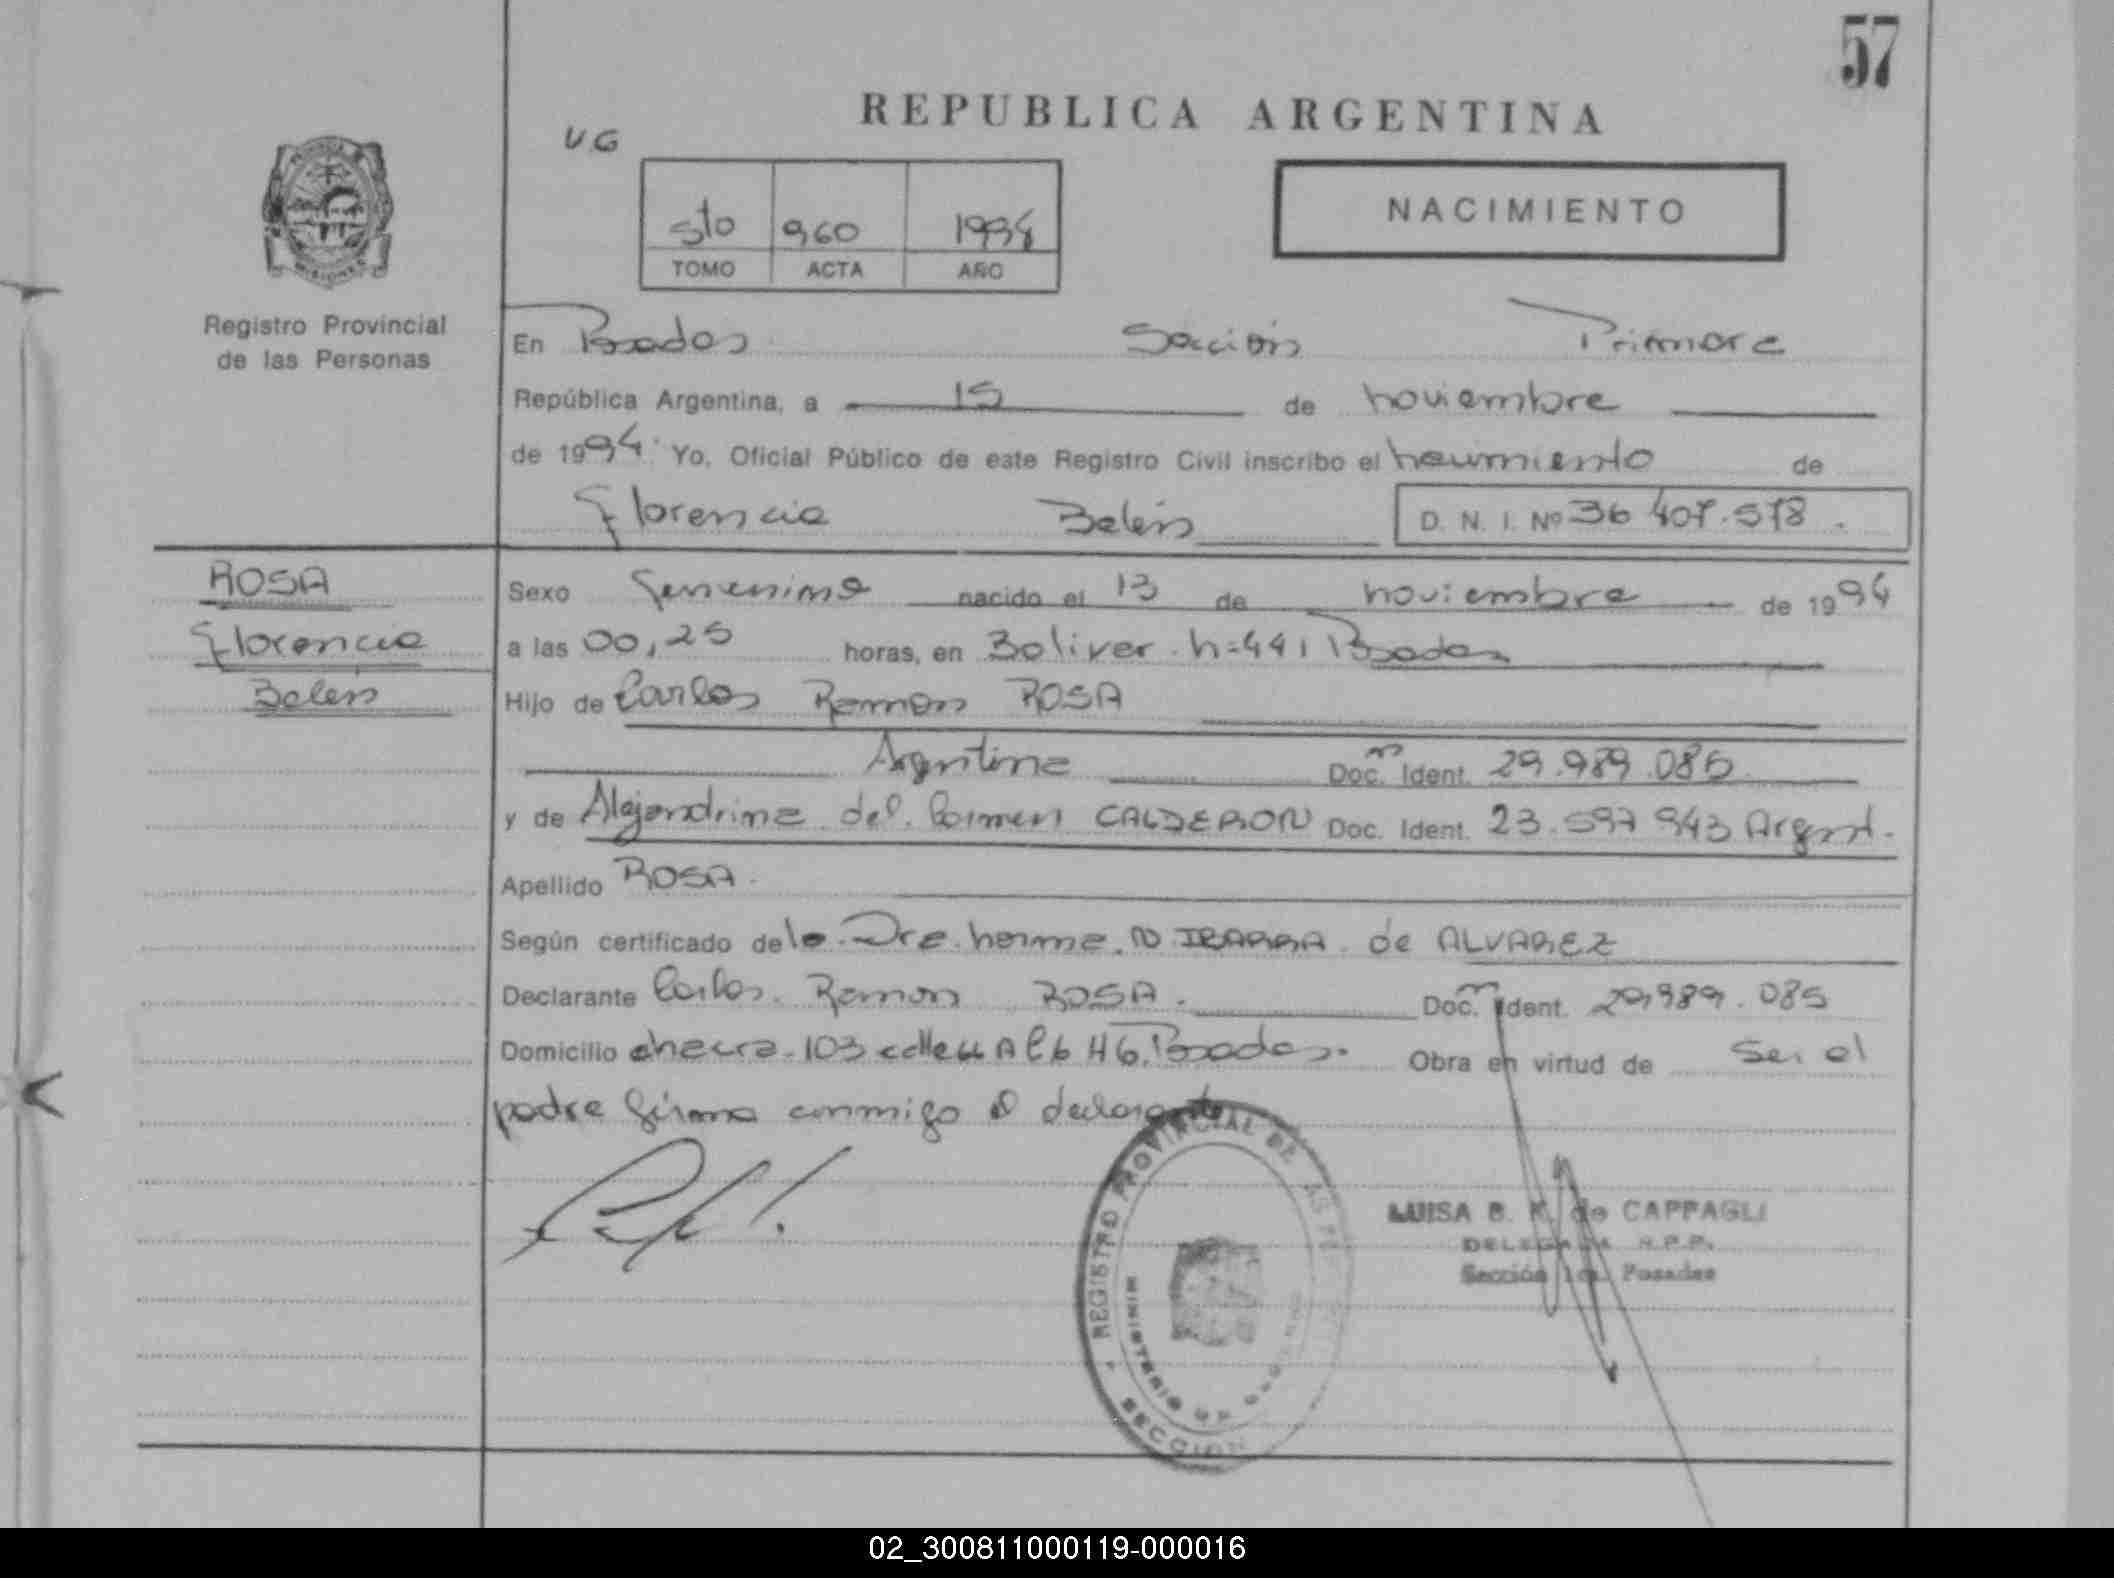 57
REPUBLICA ARGENTINA
V.G
NACIMIENTO
5to 960 1994
TOMO ACTA AÑO
Registro Provincial
de las Personas
En Posadas Sección Primera
República Argentina, a 15 de noviembre
de 1994. Yo, Oficial Público de este Registro Civil inscribo el nacimiento de
Florencia Belén D. N. I. Nº 36 407.578.
ROSA
Florencia
Belén
Sexo femenino nacido el 13 de noviembre de 1994
a las 00,25 horas, en Bolivar n=441 Posadas
Hijo de Carlos Ramon ROSA
Argentina Doc. Ident. 29.989.085
y de Alejandrina del Carmen CALDERON Doc. Ident. 23.597 943 Argent.
Apellido ROSA.
Según certificado de la Dra. norma. N. IBARRA de ALVAREZ
Declarante Carlos Ramon ROSA. Doc. Ident. 29,989.085
Domicilio chacra 103 calle Posadas. Obra en virtud de Ser el
padre firma conmigo el declarante
REGISTRO PROVINCIAL DE LAS
MINISTERIO DE GOBIERNO
SECCION
LUISA B. K. de CAPPAGLI
DELEGADA R.P.P.
Sección 1a. Posadas
02_300811000119-000016